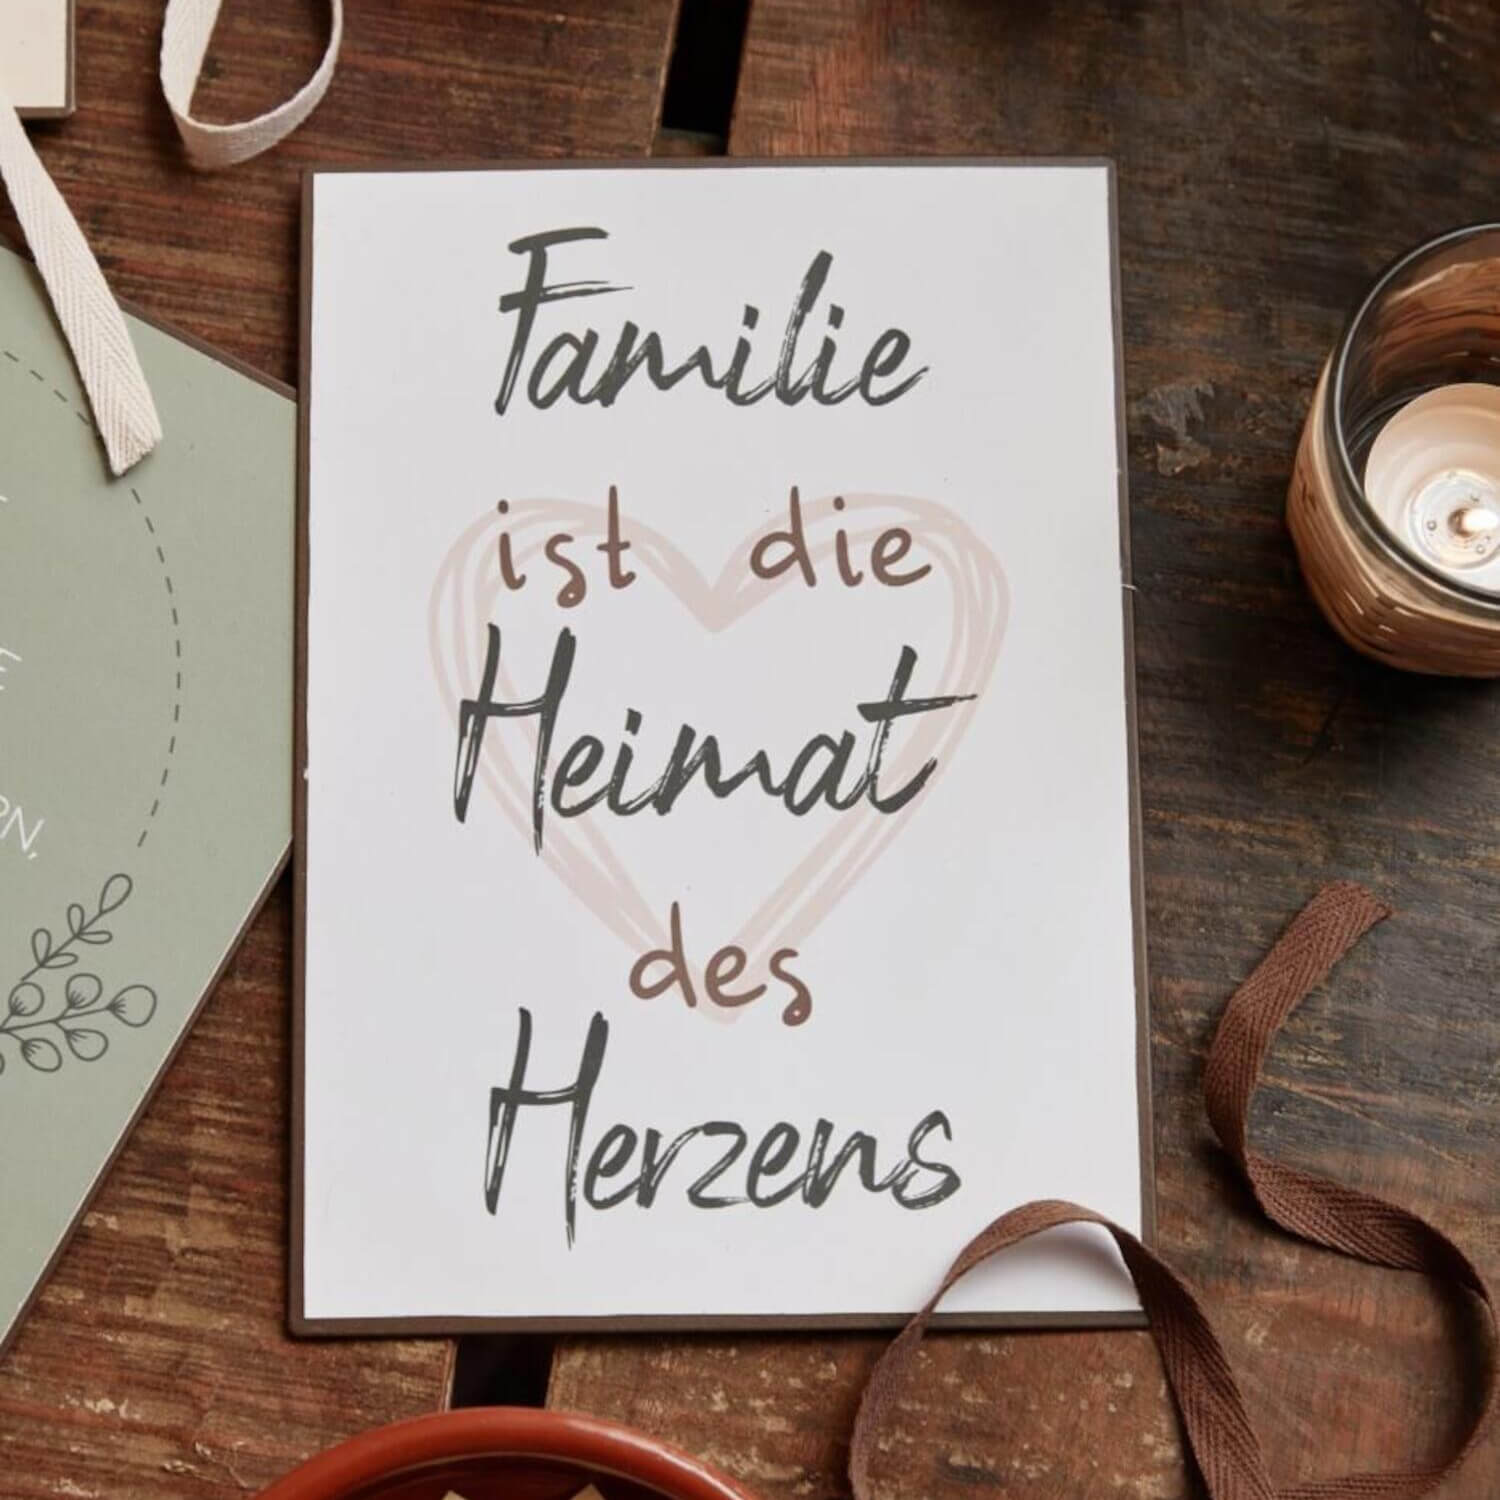 Familie
ist die
Heimat
des
Herzens